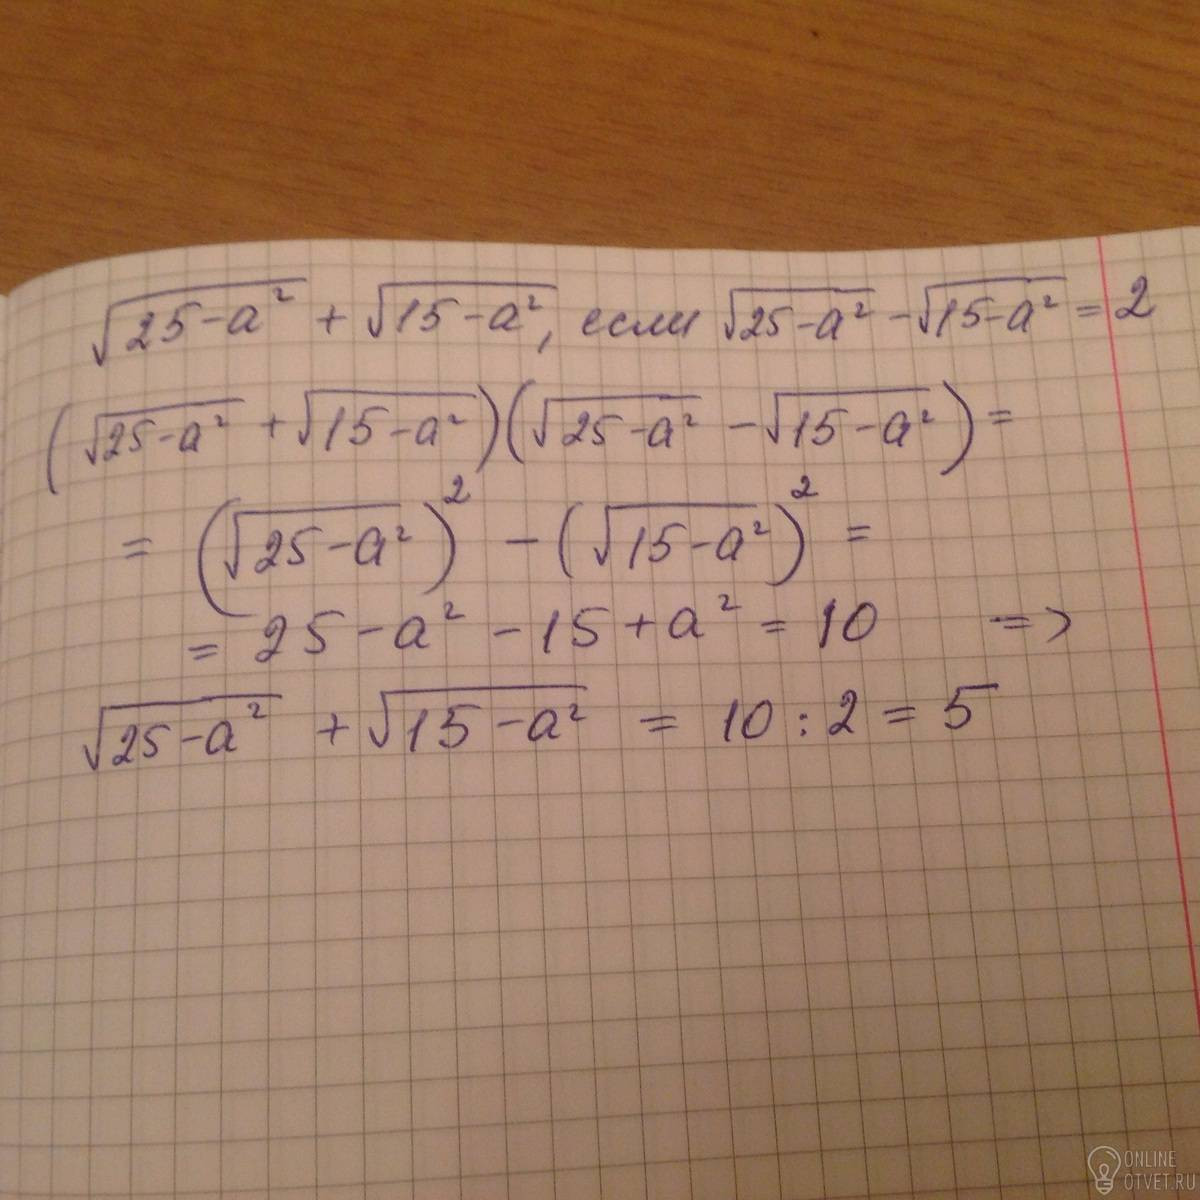 √25-a² + √15-a², если √25-a² - √15-a² = 2
(√25-a² + √15-a²)(√25-a² - √15-a²) =
= (√25-a²)² - (√15-a²)² =
= 25 - a² - 15 + a² = 10 =>
√25-a² + √15-a² = 10 : 2 = 5
ONLINE
OTVET.RU